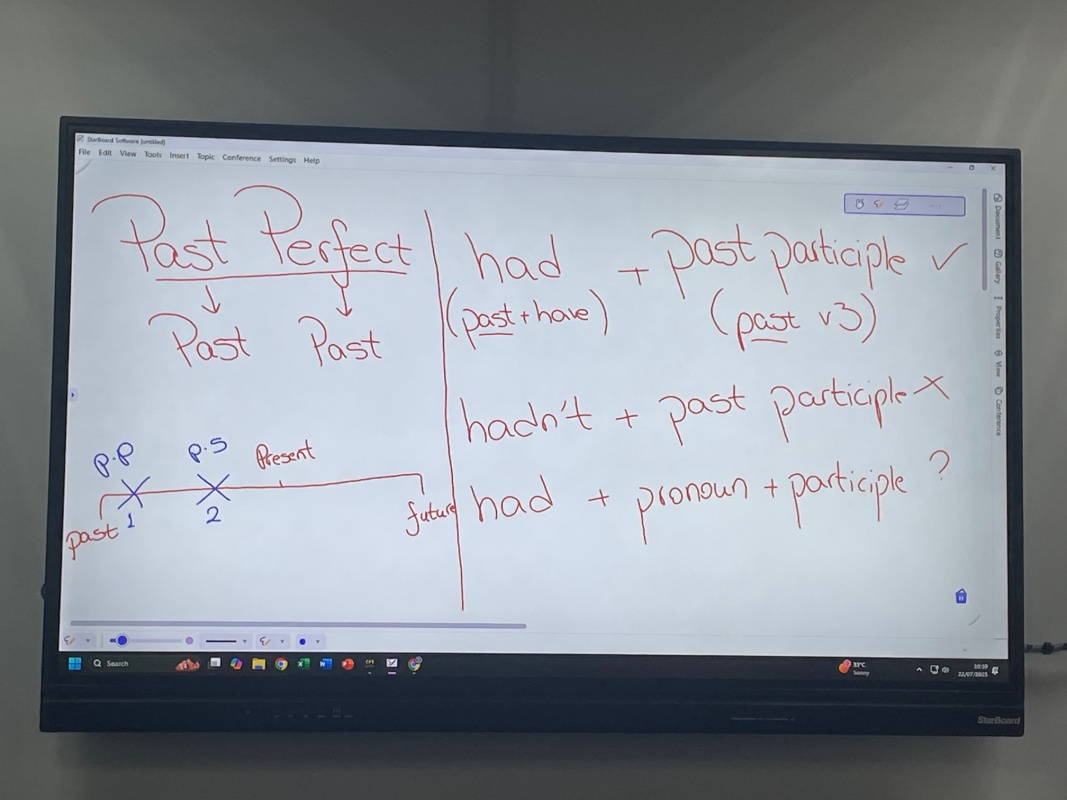 StarBoard Software [untitled]
File Edit View Tools Insert Topic Conference Settings Help
Past Perfect
Past Past
P.P P.S Present
1 2
past future
had + past participle ✓
(past + have) (past v3)
hadn't + past participle ✗
had + pronoun + participle ?
Document
Gallery
Properties
View
Conference
Search
33°C
Sunny
10:39
22/07/2025
StarBoard